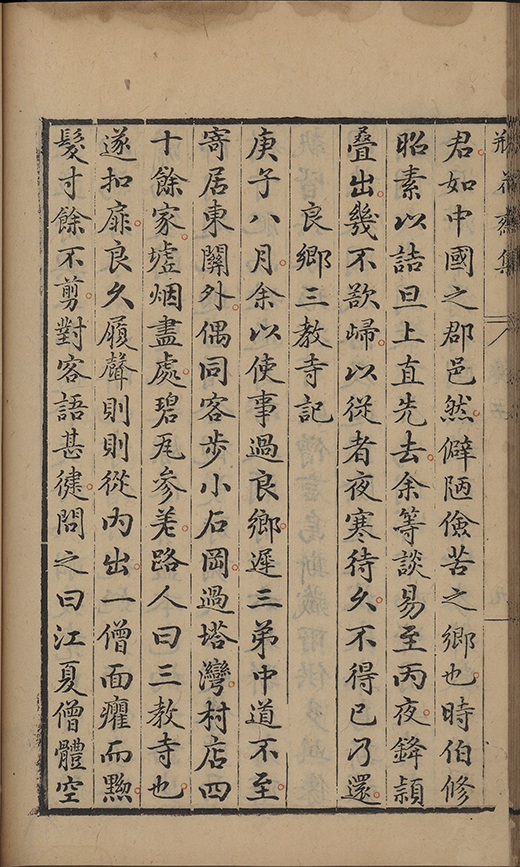 瓶花齋集
君如中國之郡邑然僻陋儉苦之鄉也時伯修
昭素以詰旦上直先去余等談易至丙夜鋒頴
疊出幾不欲歸以從者夜寒待久不得已乃還
良鄉三教寺記
庚子八月余以使事過良鄉遲三弟中道不至
寄居東關外偶同客步小石岡過塔灣村店四
十餘家墟烟盡處碧瓦參差路人曰三教寺也
遂扣扉良久履聲則則從内出一僧面癯而黝
髮寸餘不剪對客語甚徤問之曰江夏僧體空